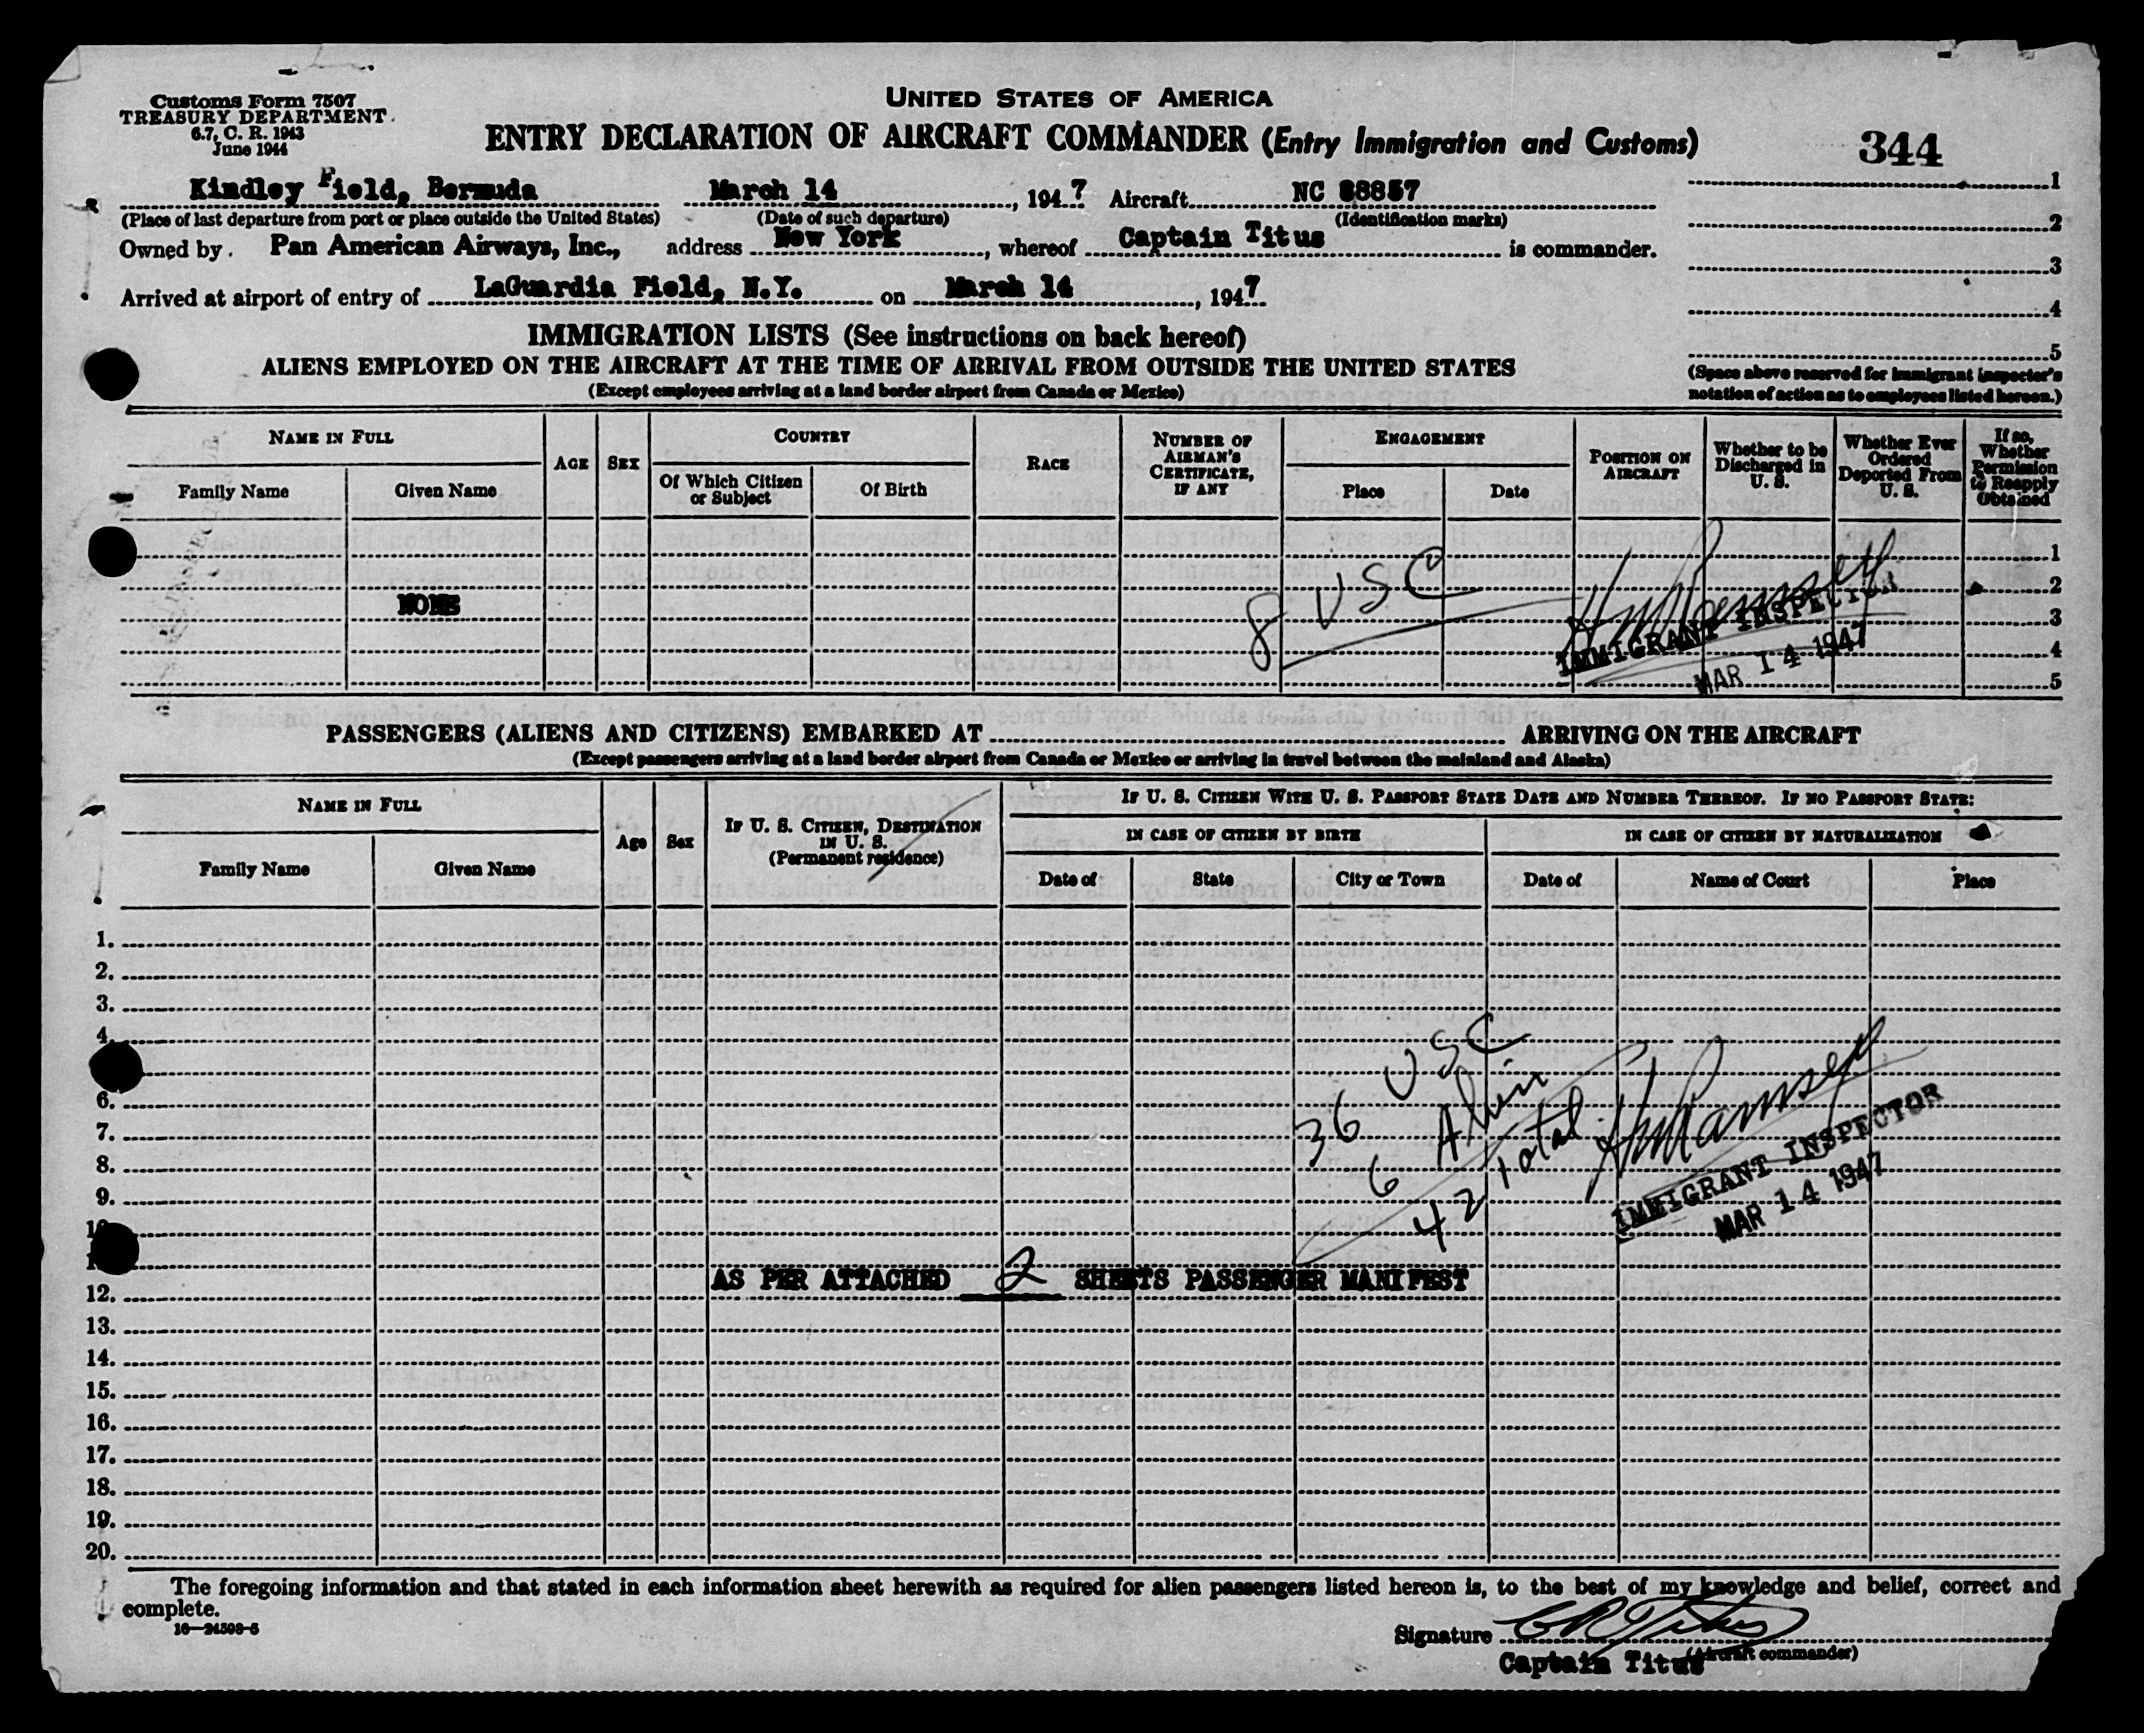 Customs Form 7507
TREASURY DEPARTMENT
6.7, C. R. 1943
June 1944
UNITED STATES OF AMERICA
ENTRY DECLARATION OF AIRCRAFT COMMANDER (Entry Immigration and Customs)
344
Kindley Field, Bermuda March 14, 1947 Aircraft NC 88857
(Place of last departure from port or place outside the United States) (Date of such departure) (Identification marks)
Owned by Pan American Airways, Inc., address New York, whereof Captain Titus is commander.
Arrived at airport of entry of LaGuardia Field, N.Y. on March 14, 1947
1
2
3
4
5
(Space above reserved for immigrant inspector's
notation of action as to employees listed hereon.)
IMMIGRATION LISTS (See instructions on back hereof)
ALIENS EMPLOYED ON THE AIRCRAFT AT THE TIME OF ARRIVAL FROM OUTSIDE THE UNITED STATES
(Except employees arriving at a land border airport from Canada or Mexico)
NAME IN FULL
Family Name
Given Name
AGE
SEX
COUNTRY
Of Which Citizen
or Subject
Of Birth
RACE
NUMBER OF
AIRMAN'S
CERTIFICATE,
IF ANY
ENGAGEMENT
Place
Date
POSITION ON
AIRCRAFT
Whether to be
Discharged in
U. S.
Whether Ever
Ordered
Deported From
U. S.
If so,
Whether
Permission
to Reapply
Obtained
1
2
3
4
5
NONE
8 USC
IMMIGRANT INSPECTOR
MAR 14 1947
PASSENGERS (ALIENS AND CITIZENS) EMBARKED AT ARRIVING ON THE AIRCRAFT
(Except passengers arriving at a land border airport from Canada or Mexico or arriving in travel between the mainland and Alaska)
NAME IN FULL
Family Name
Given Name
Age
Sex
IF U. S. CITIZEN, DESTINATION
IN U. S.
(Permanent residence)
IF U. S. CITIZEN WITH U. S. PASSPORT STATE DATE AND NUMBER THEREOF. IF NO PASSPORT STATE:
IN CASE OF CITIZEN BY BIRTH
IN CASE OF CITIZEN BY NATURALIZATION
Date of
State
City or Town
Date of
Name of Court
Place
1.
2.
3.
4.
6.
7.
8.
9.
12.
13.
14.
15.
16.
17.
18.
19.
20.
36 USC
6 Alien
42 Total
IMMIGRANT INSPECTOR
MAR 14 1947
AS PER ATTACHED 2 SHEETS PASSENGER MANIFEST
The foregoing information and that stated in each information sheet herewith as required for alien passengers listed hereon is, to the best of my knowledge and belief, correct and
complete.
16—24598-5
Signature C R Titus
(Aircraft commander)
Captain Titus